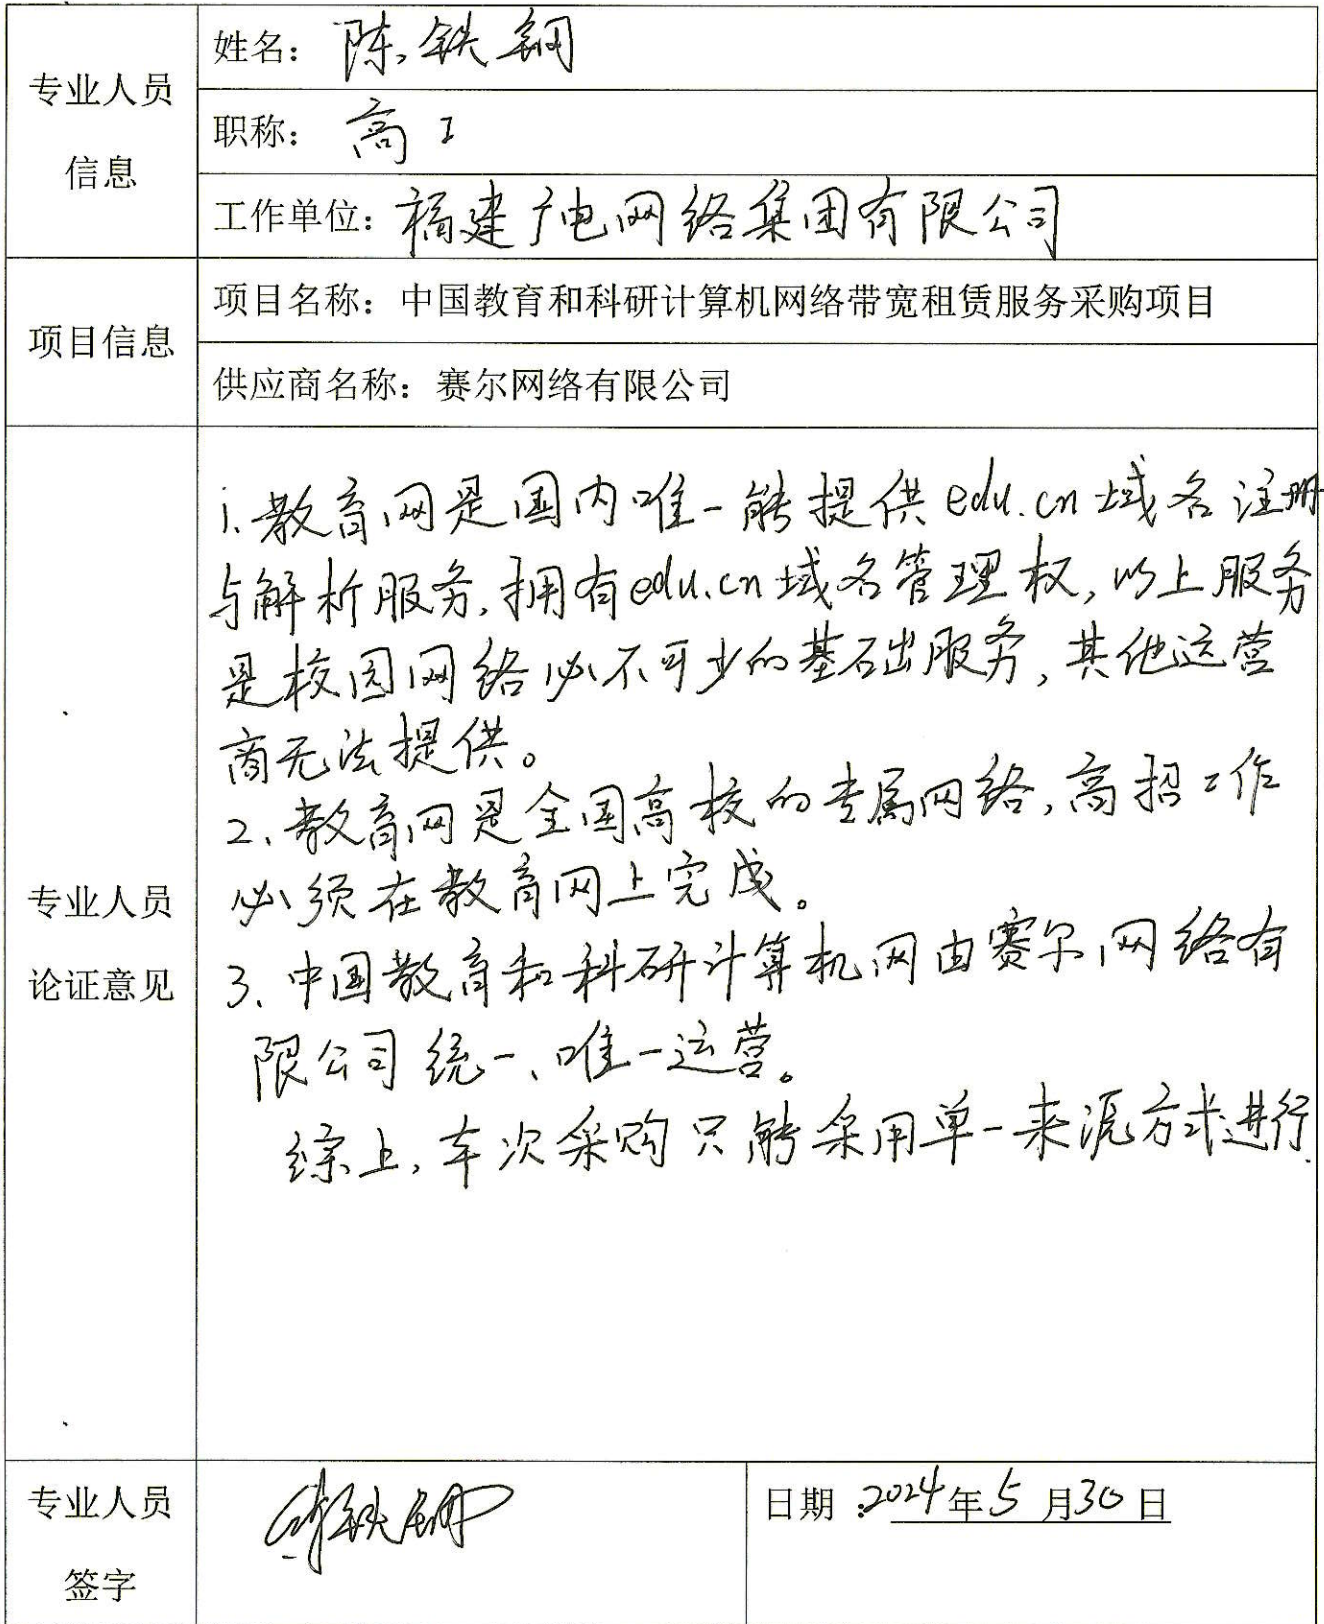 专业人员
信息
姓名：陈铁钢
职称：高工
工作单位：福建广电网络集团有限公司
项目信息
项目名称：中国教育和科研计算机网络带宽租赁服务采购项目
供应商名称：赛尔网络有限公司
专业人员
论证意见
1.教育网是国内唯一能提供edu.cn域名注册
与解析服务,拥有edu.cn域名管理权,以上服务
是校园网络必不可少的基础服务,其他运营
商无法提供。
2、教育网是全国高校的专属网络,高招工作
必须在教育网上完成。
3、中国教育和科研计算机网由赛尔网络有
限公司统一、唯一运营。
综上,本次采购只能采用单一来源方式进行.
专业人员
签字
陈铁钢
日期：2024年5月30日